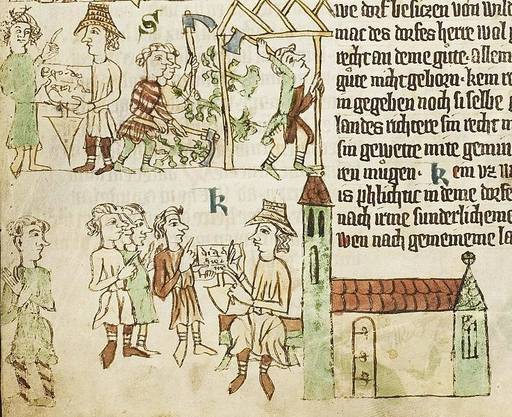 S
we dorf besiczen von wild
mac des dorfes herre wol
recht an deme gute. allem
gute nicht geborn. kein re
in gegeben noch si selbe
landes richtere sin recht m
sin gewette mite gemin
ren mugen. K em uz w
is phlichtic in deme dorfe
nach irme sunderlicheme
wen nach gemeineme la
ego dei
K